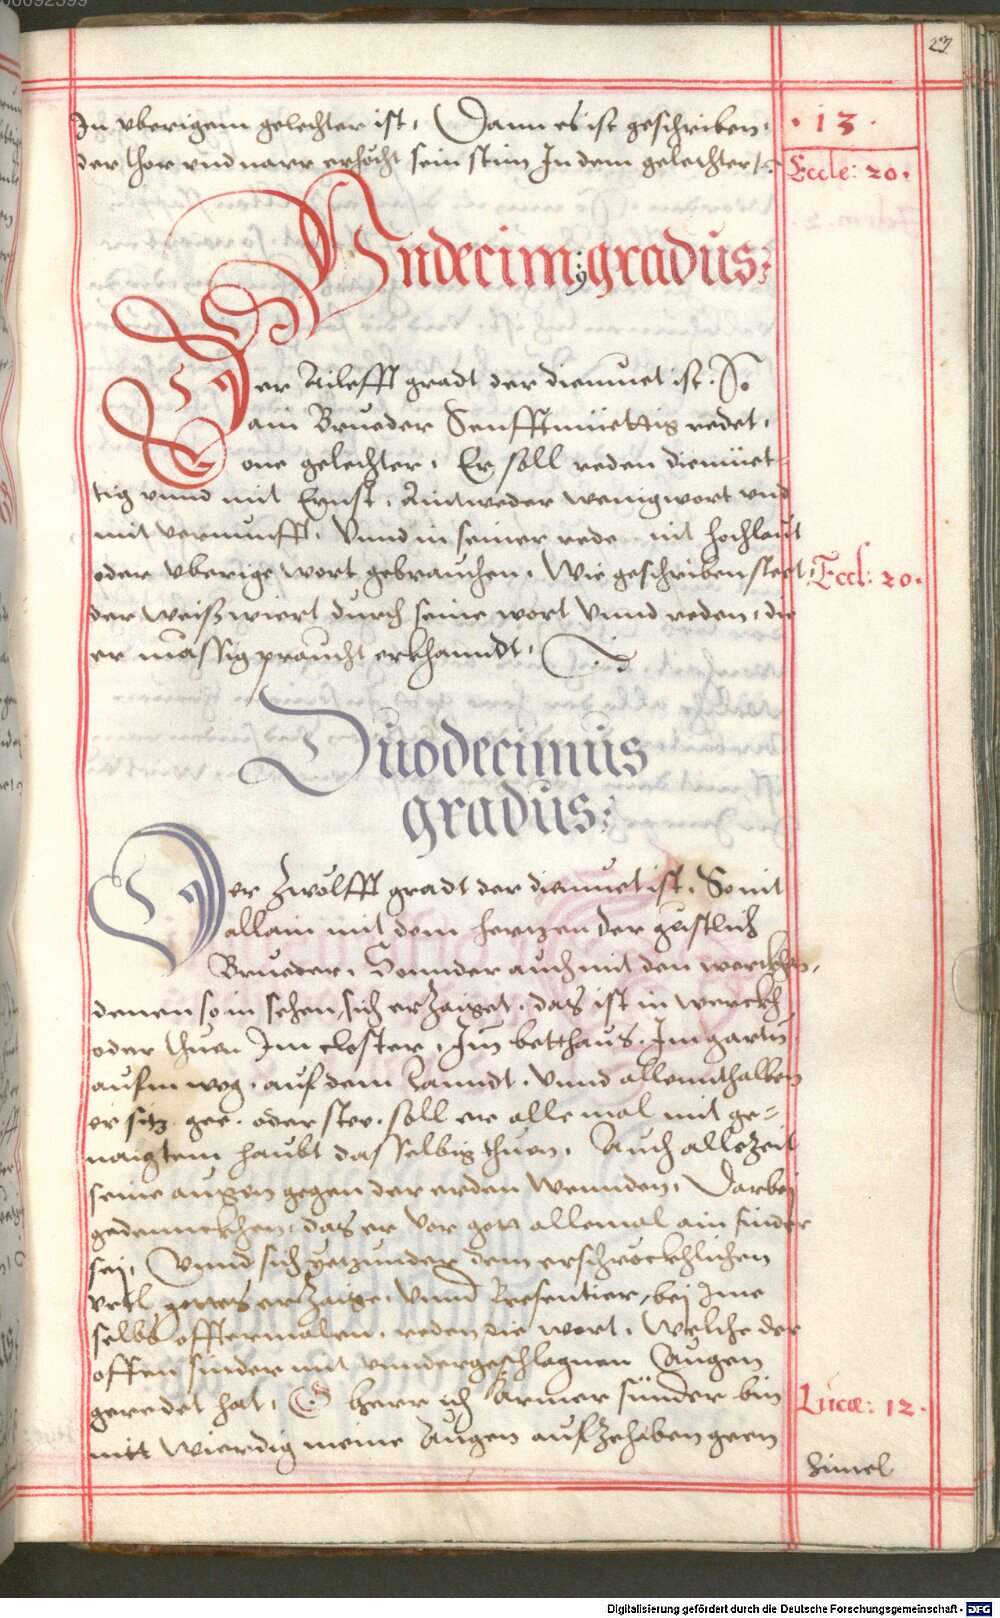 23
In vberigem gelechter ist, Dann es ist geschriben,
. 13 .
der thor vnd narr erhöcht sein stim In dem gelechter.
Eccle: 20.
Vndecim9 gradus:
Der Ailefft gradt der diemuet ist. So
ain Brueder Senfftmüettig redet,
one gelechter, Er soll reden diemüet-
tig vnnd mit Ernst, Aintweder wenig wort vnd
mit vernunfft, Vnnd in seiner rede nit hochlaut
oder vberige wort gebrauchen, Wie geschriben steet,
Eccl: 20.
der weiß wiert durch seine wort vnnd reden, die
er mässig praucht erkhanndt,
Duodecimus
gradus:
Der Zwölfft gradt der diemuet ist, So nit
allain mit dem hertzen der gaistlich
Brueder, Sonnder auch mit den werckhen,
denen so in sehen, sich erzaiget, das ist in werckh
oder thuen Im closter, Im betthaus, Im garten
auf m weg, auf dem Lanndt, Vnnd allennthalben
er sitz, gee, oder stee, soll er alle mal mit ge-
naigtem haubt dasselbig thuen, Auch allezeit
seine augen gegen der erden wennden, Darbei
gedennckhen, das er vor gott allemal ain sinder
sei, Vnnd sich yetzunder dem erschrockhlichen
vrtl gottes erzaige, vnnd Presentier, bei Ime
selbs offtermalen, reden die wort, Welche der
offen sinder mit vnndergeschlagnen Augen
geredet hat, O herr ich Armer sünder bin
Lucæ: 12.
nitt wierdig meine Augen auf Zehaben geen
himel
00092599
Digitalisierung gefördert durch die Deutsche Forschungsgemeinschaft - DFG